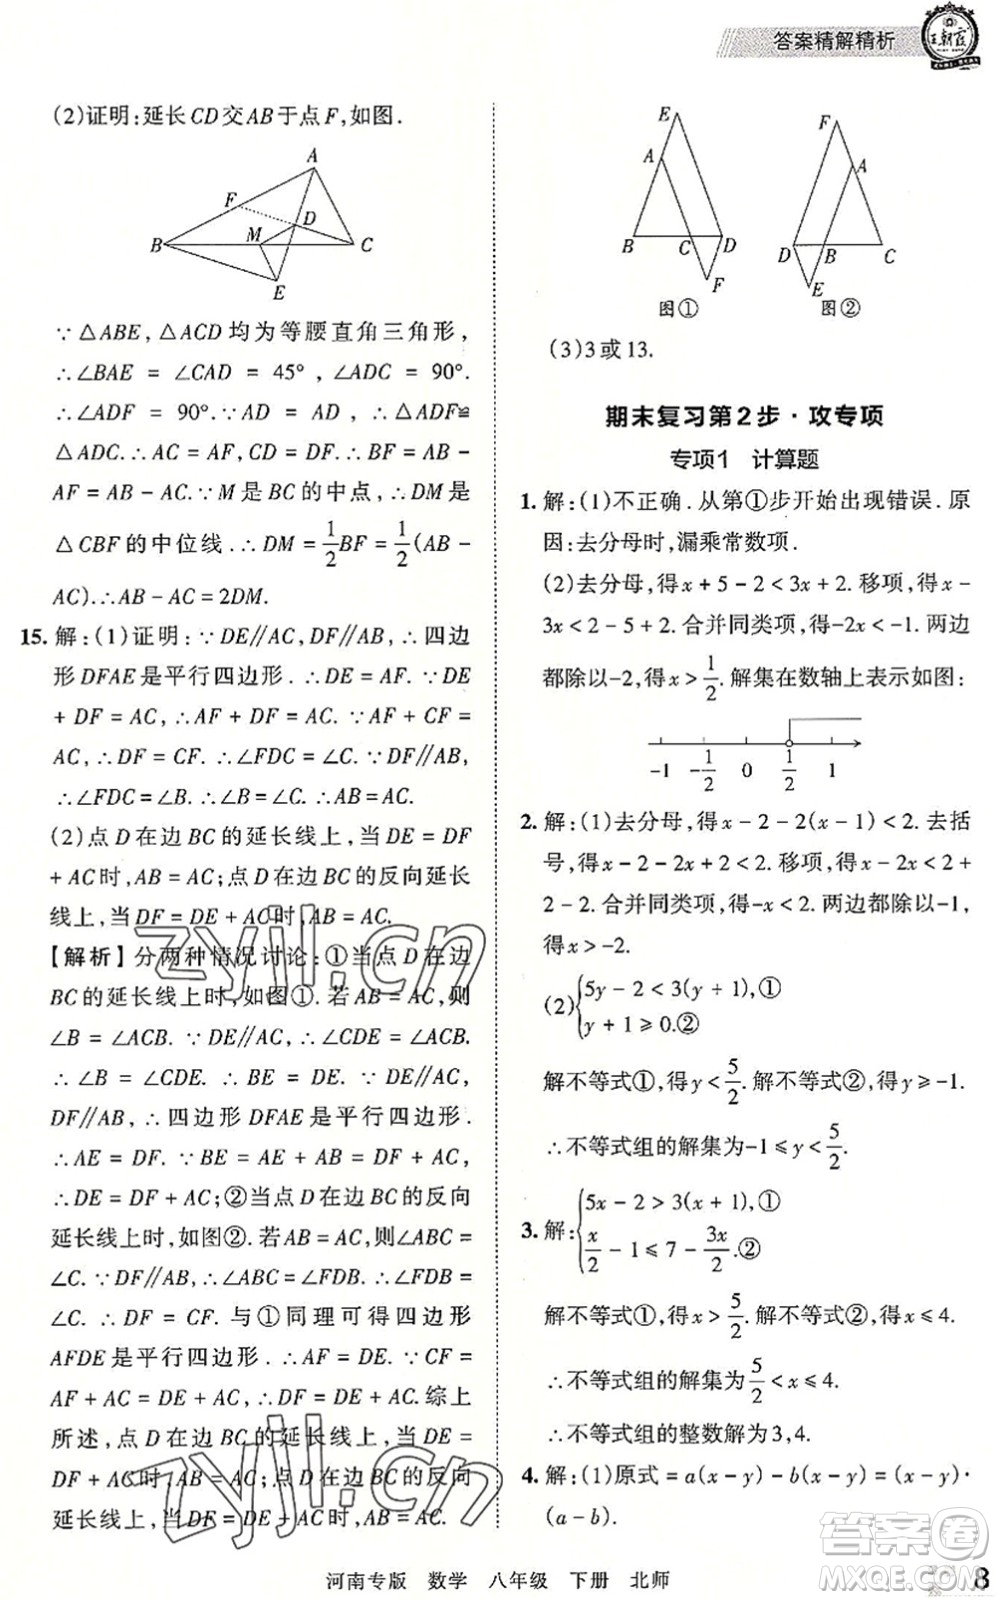 答案精解精析
王朝霞
(2)证明:延长CD交AB于点F,如图.
A
F
D
B
M
C
E
∵△ABE,△ACD均为等腰直角三角形,
∴∠BAE = ∠CAD = 45°,∠ADC = 90°.
∴∠ADF = 90°.∵AD = AD,∴△ADF≌
△ADC.∴AC = AF,CD = DF.∴BF = AB -
AF = AB - AC.∵M是BC的中点,∴DM是
△CBF的中位线.∴DM = 1/2 BF = 1/2 (AB -
AC).∴AB - AC = 2DM.
15. 解:(1)证明:∵DE//AC,DF//AB,∴四边
形DFAE是平行四边形.∴DE = AF.∵DE
+ DF = AC,∴AF + DF = AC.∵AF + CF =
AC,∴DF = CF.∴∠FDC = ∠C.∵DF//AB,
∴∠FDC = ∠B.∴∠B = ∠C.∴AB = AC.
(2)点D在边BC的延长线上,当DE = DF
+ AC时,AB = AC;点D在边BC的反向延长
线上,当DF = DE + AC时,AB = AC.
【解析】分两种情况讨论:①当点D在边
BC的延长线上时,如图①.若AB = AC,则
∠B = ∠ACB.∵DE//AC,∴∠CDE = ∠ACB.
∴∠B = ∠CDE.∴BE = DE.∵DE//AC,
DF//AB,∴四边形DFAE是平行四边形.
∴AE = DF.∵BE = AE + AB = DF + AC,
∴DE = DF + AC;②当点D在边BC的反向
延长线上时,如图②.若AB = AC,则∠ABC =
∠C.∵DF//AB,∴∠ABC = ∠FDB.∴∠FDB =
∠C.∴DF = CF.与①同理可得四边形
AFDE是平行四边形.∴AF = DE.∵CF =
AF + AC = DE + AC,∴DF = DE + AC.综上
所述,点D在边BC的延长线上,当DE = DF
+ AC时,AB = AC;点D在边BC的反向延长
线上,当DF = DE + AC时,AB = AC.
E
A
B
C
D
F
图①
F
A
D
B
C
E
图②
(3)3或13.
期末复习第2步·攻专项
专项1 计算题
1. 解:(1)不正确.从第①步开始出现错误.原
因:去分母时,漏乘常数项.
(2)去分母,得x + 5 - 2 < 3x + 2.移项,得x -
3x < 2 - 5 + 2.合并同类项,得-2x < -1.两边
都除以-2,得x > 1/2.解集在数轴上表示如图:
-1 -1/2 0 1/2 1
2. 解:(1)去分母,得x - 2 - 2(x - 1) < 2.去括
号,得x - 2 - 2x + 2 < 2.移项,得x - 2x < 2 +
2 - 2.合并同类项,得-x < 2.两边都除以-1,
得x > -2.
(2){5y - 2 < 3(y + 1),①
y + 1 ≥ 0.②
解不等式①,得y < 5/2.解不等式②,得y ≥ -1.
∴不等式组的解集为-1 ≤ y < 5/2.
3. 解:{5x - 2 > 3(x + 1),①
x/2 - 1 ≤ 7 - 3x/2.②
解不等式①,得x > 5/2.解不等式②,得x ≤ 4.
∴不等式组的解集为5/2 < x ≤ 4.
∴不等式组的整数解为3,4.
4. 解:(1)原式 = a(x - y) - b(x - y) = (x - y)·
(a - b).
zyjl.cn
zyjl.cn
答案卷
河南专版 数学 八年级 下册 北师
8